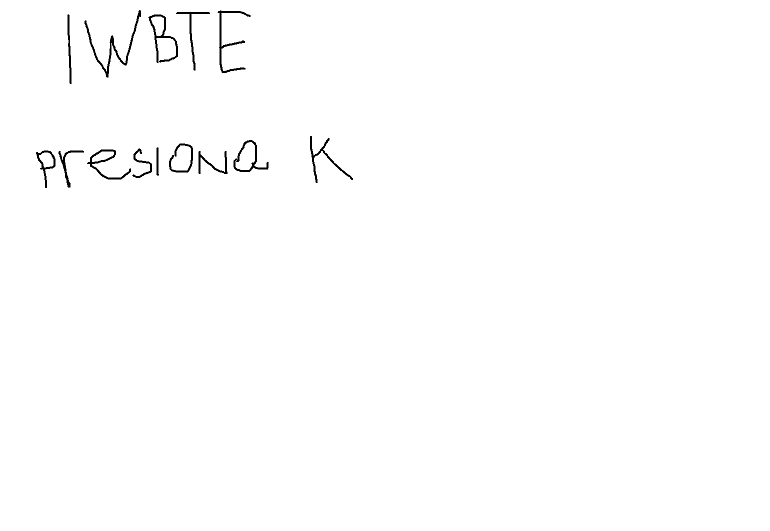 IWBTE
presiona K